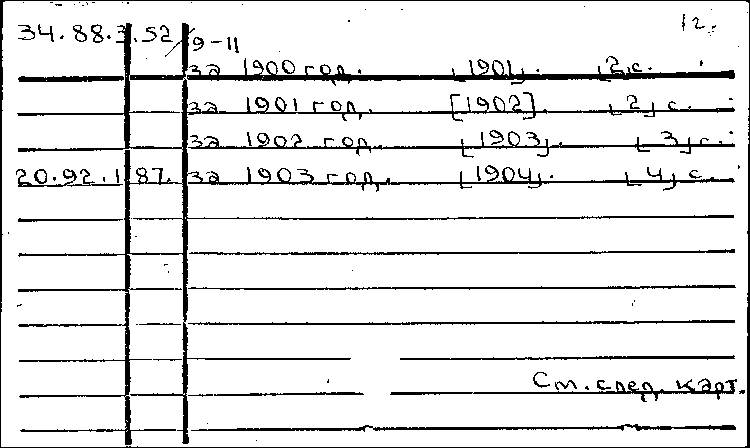 12.
34.88.3.52/9-11
за 1900 год. [1901]. [2] с.
за 1901 год. [1902]. [2] с.
за 1902 год. [1903]. [3] с.
20.92.1.87. за 1903 год. [1904]. [4] с.
См. след. карт.